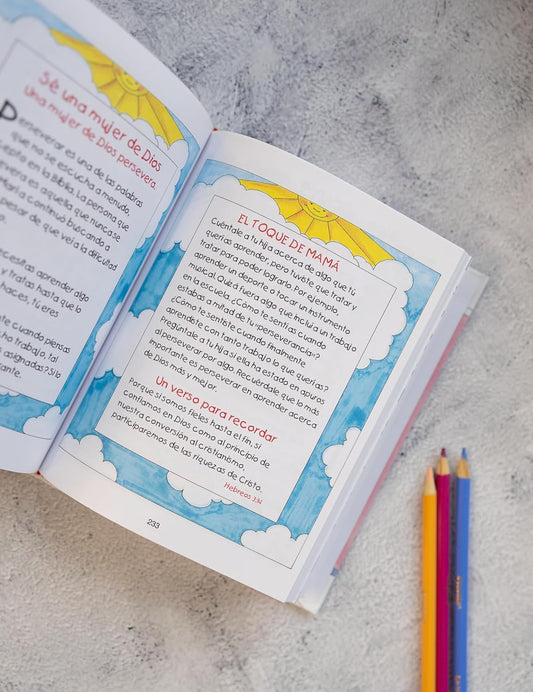 Sé una mujer de Dios
Una mujer de Dios persevera.
Perseverar es una de las palabras
que no se escucha a menudo,
cepto en la Biblia. La persona que
severa es aquella que nunca se
María continuó buscando a
pesar de que veía la dificultad
ecesitas aprender algo
y tratas hasta que lo
haces, tú eres
te cuando piensas
cho trabajo, tal
asignadas? Si lo
tante.
EL TOQUE DE MAMÁ
Cuéntale a tu hija acerca de algo que tú
querías aprender, pero tuviste que tratar y
tratar para poder lograrlo. Por ejemplo,
aprender un deporte o tocar un instrumento
musical. Quizá fuera algo que incluía un trabajo
en la escuela. ¿Cómo te sentías cuando
estabas a mitad de tu «perseverancia»?
¿Cómo te sentiste cuando finalmente
aprendiste con tanto trabajo lo que querías?
Pregúntale a tu hija si ella ha estado en apuros
al perseverar por algo. Recuérdale que lo más
importante es perseverar en aprender acerca
de Dios más y mejor.
Un verso para recordar
Porque si somos fieles hasta el fin, si
confiamos en Dios como al principio de
nuestra conversión al cristianismo,
participaremos de las riquezas de Cristo.
Hebreos 3:14
233